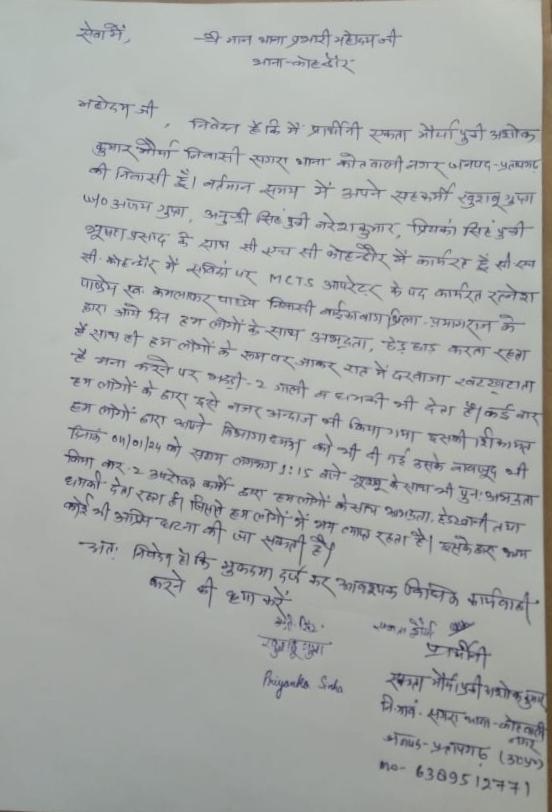 सेवा में,
श्री मान थाना प्रभारी महोदय जी
थाना-कोहडौर
महोदय जी,
निवेदन है कि मैं प्रार्थीनी एकता मौर्या पुत्री अशोक
कुमार मौर्या निवासी सगरा थाना कोतवाली नगर जनपद-प्रतापगढ़
की निवासी हूँ। वर्तमान समय में अपने सहकर्मी खुशबू गुप्ता
w/o अजय गुप्ता, अनुश्री सिंह पुत्री नरेश कुमार, प्रियंका सिंह पुत्री
प्रसाद के साथ सी एच सी कोहन्डौर में कार्यरत हूँ सी एच
सी-कोहन्डौर में संविदा पर MCTS आपरेटर के पद कार्यरत रत्नेश
पाण्डेय स्व. कमलाकर पाण्डेय निवासी जिला-प्रयागराज के
द्वारा आये दिन हम लोगों के साथ अभद्रता, छेड़छाड़ करता रहता
है साथ ही हम लोगों के रूम पर जाकर रात में दरवाजा खटखटाता
है मना करने पर भद्दी-2 गाली व धमकी भी देता है। कई बार
हम लोगों के द्वारा इसे नजर अन्दाज भी किया गया इसकी शिकायत
हम लोगों द्वारा अपने विभागाध्यक्ष को भी दी गई उसके बावजूद भी
दिनांक 04/01/24 को समय लगभग 1:15 बजे खुशबू के साथ भी पुनः अभद्रता
किया बार-2 उपरोक्त कर्मी द्वारा हम लोगों के साथ अभद्रता, छेड़खानी तथा
धमकी देता रहता है। जिससे हम लोगों में भय व्याप्त रहता है। इसके द्वारा
कोई भी अप्रिय घटना की जा सकती है।
अतः निवेदन है कि मुकदमा दर्ज कर आवश्यक विधिक कार्यवाही
करने की कृपा करें
एकता मौर्या
खुशबू गुप्ता
प्रार्थीनी
Priyanka
एकता मौर्या पुत्री अशोक कुमार
नि.ग्राम- सगरा थाना-कोतवाली
नगर
जनपद-प्रतापगढ़ (उ०प्र०)
no- 6389512771